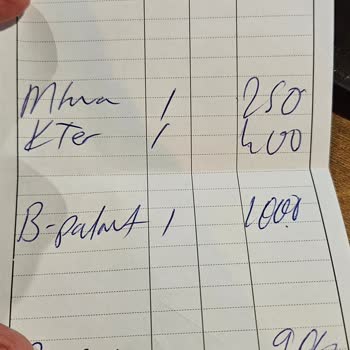 Mhra 1 250
KTer 1 400
B-palmt 1 1000